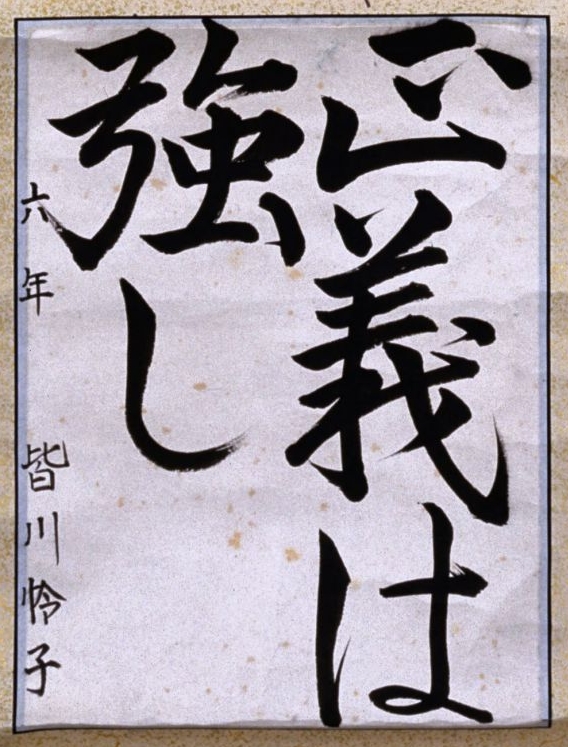 正義は
強し
六年 皆川怜子